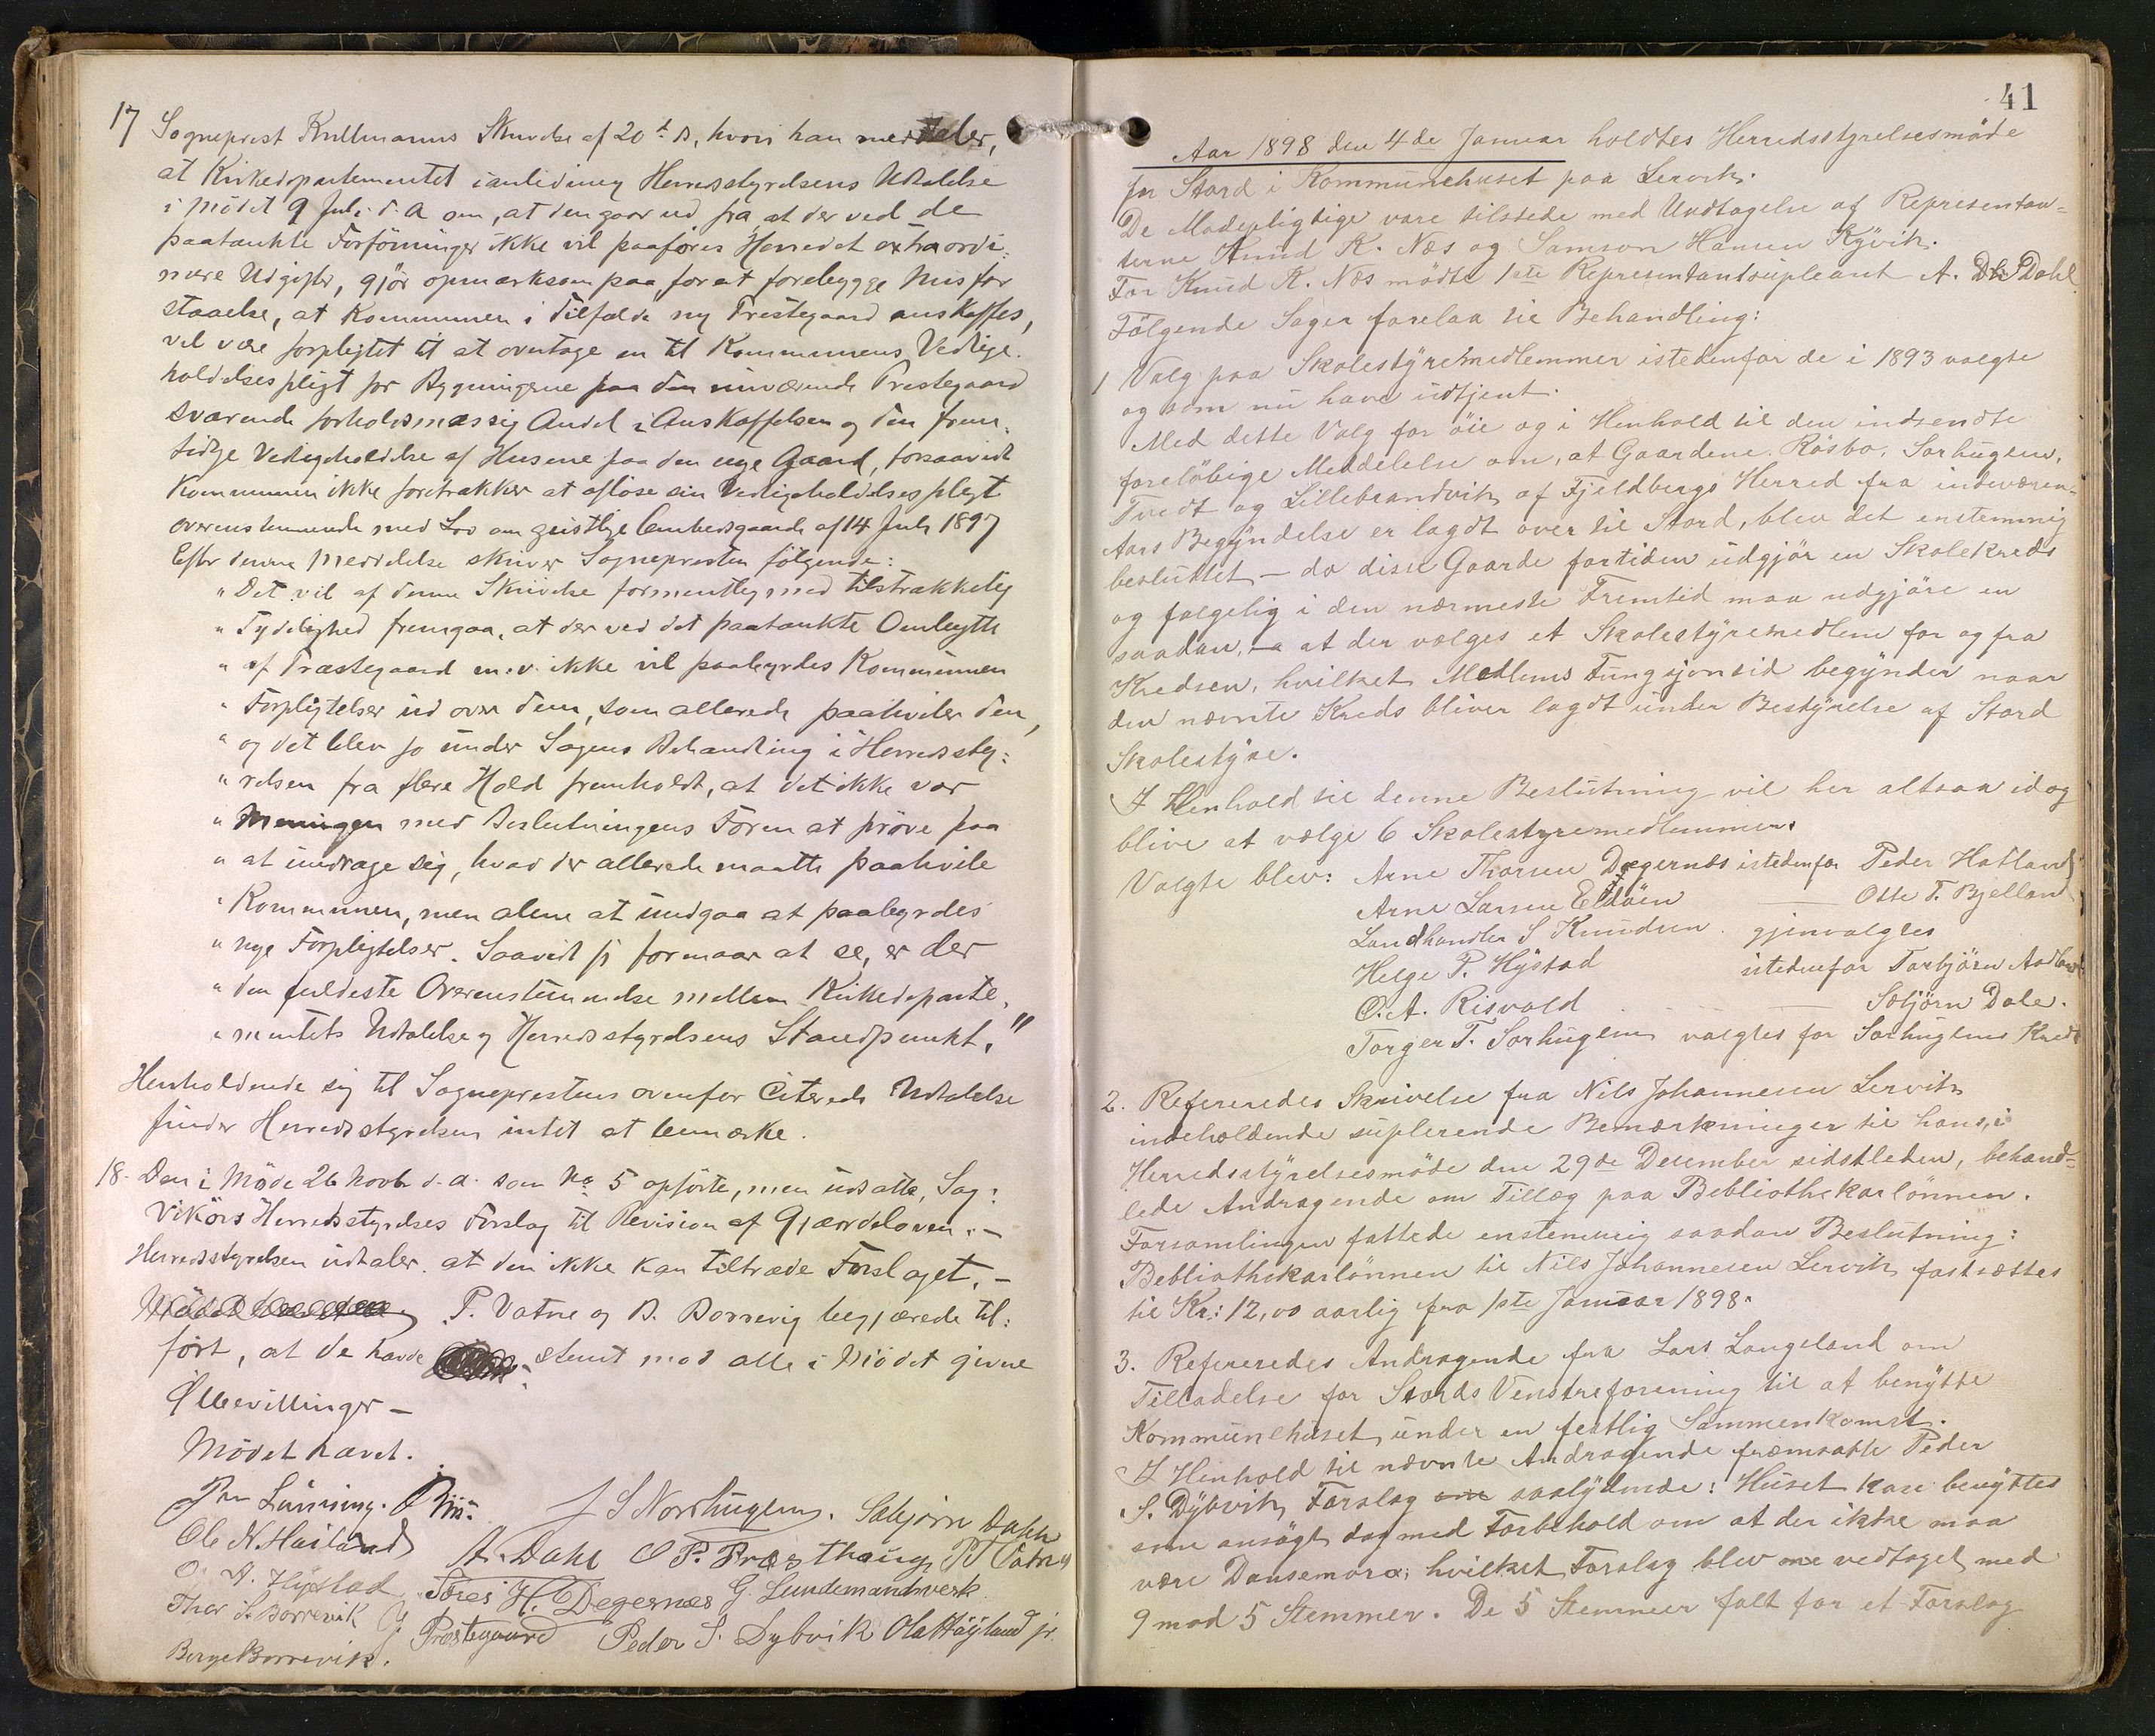 17 Sogneprest Kullmanns Skrivelse af 20de ds, hvori han meddeler,
at Kirkedepartementet i anledning Herredsstyrelsens Udtalelse
i mödet 9 Juli d. A om, at den gaar ud fra, at der ved de
paatænkte Forföininger ikke vil paaföres Herredet extraordi-
nære Udgifter, gjör opmærksom paa, for at forebygge Misfor
staaelse, at Kommunen i Tilfælde ny Prestegaard anskaffes,
vil være forpligtet til at overtage en til Kommunens Vedlige-
holdelsespligt for Bygningerne paa den nuværende Prestegaard
svarende forholdsmæssig Andel i Anskaffelsen og den frem-
tidige Vedligeholdelse af Husene paa den nye Gaard, forsaavidt
Kommunen ikke foretrækker at aflöse sin Vedligeholdelsespligt
overensstemmende med Lov om geistlige Embedsgaarde af 14 Juli 1897
Efter denne Meddelelse skriver Sognepresten fölgende:
"Det vil af denne Skrivelse formentlig med tilstrækkelig
" Tydelighed fremgaa, at der ved det paatænkte Ombytte
" af Præstegaard m.v. ikke vil paabyrdes Kommunen
" Forpligtelser ud over dem, som allerede paahviler den,
" og det blev jo under Sagens Behandling i Herredssty-
" relsen fra flere Hold fremholdt, at det ikke var
" Meningen med Beslutningens Form at pröve paa
" at unddrage sig, hvad der allerede maatte paahvile
" Kommunen, men alene at undgaa at paabyrdes
" nye Forpligtelser. Saavidt jeg formaar at se, er der
" den fuldeste Overensstemmelse mellem Kirkedeparte-
" mentets Udtalelse og Herredsstyrelsens Standpunkt."
Henholdende sig til Sogneprestens ovenfor citerede Udtalelse
finder Herredsstyrelsen intet at bemærke.
18. Den i Möde 26 Novbr d. a. som No 5 opförte, men udsatte, Sag:
Vikörs Herredsstyrelses Forslag til Revision af Gjærdeloven. –
Herredsstyrelsen udtaler, at den ikke kan tiltræde Forslaget. –
P. Vatne og B. Borrevig begjærede til-
fört, at de havde stemt mod alle i Mödet givne
Ölbevillinger –
Mödet hævet.
J S Nordhuglen. Sæbjörn Dahle
Ole N. Haıland A. Dahl O P. Præsthaug P T Vatne
O. A. Hystad Töres H. Degernes G. Lundemandsverk
Thor S. Borrevik O Præstegaard Peder S. Dybvik Ola Höyland jr.
Børge Borrevik.
41
Aar 1898 den 4de Januar holdtes Herredsstyrelsesmöde
for Stord i Kommunehuset paa Lervik.
De Mödepligtige vare tilstede med Undtagelse af Representan-
terne Knud K. Næs og Samson Hansen Kyvik.
For Knud K. Næs mödte 1ste Representantsupleant A. Dahl
Fölgende Sager forelaa til Behandling:
1 Valg paa Skolestyremedlemmer istedenfor de i 1893 valgte
og som nu have udtjent.
Med dette Valg for öie og i Henhold til den indsendte
foreløbige Meddelelse om, at Gaardene Rösbo, Sorhuglen,
Tvedt og Lillebrandvik af Fjeldbergs Herred fra indeværen-
Aars Begyndelse er lagdt over til Stord, blev det enstemmig
besluttet – da disse Gaarde fortiden udgjör en Skolekreds
og følgelig i den nærmeste Fremtid maa udgjöre en
saadan, – at der vælges et Skolestyremedlem for og fra
Kredsen, hvilket Medlems Fungsjonstid begynder naar
den nævnte Kreds bliver lagdt under Bestyrelse af Stord
Skolestyre.
I Henhold til denne Beslutning vil her altsaa idag
blive at vælge 6 Skolestyremedlemmer.
Valgte blev: Arne Thorsen Dægernæs istedenfor Peder Hatland
Arne Larsen Eldöen — Otte T. Bjelland
Landhandler S Knudsen gjenvalgtes
Helge P. Hystad istedenfor Torbjörn Aadland
O. A. Risvold — Sebjörn Dale.
Torger T. Sorhuglen valgtes for Sorhuglens Kreds
2. Refereredes Skrivelse fra Nils Johannesen Lervik
indeholdende suplerende Bemærkninger til hans, i
Herredsstyrelsesmöde den 29de December sidstleden, behand-
lede Andragende om Tillæg paa Bibliothekarlönnen.
Forsamlingen fattede enstemmig saadan Beslutning:
Bebliothekarlönnen til Nils Johannesen Lervik fastsættes
til Kr: 12,00 aarlig fra 1ste Januar 1898.
3. Refereredes Andragende fra Lars Langeland om
Tilladelse for Stords Venstreforening til at benytte
Kommunehuset under en festlig Sammenkomst.
I Henhold til nævnte Andragende fremsatte Peder
S. Dybvik Forslag saalydende: Huset kan benyttes
som ansögt dog med Forbehold om at der ikke maa
være Dansemoro; hvilket Forslag blev vedtaget med
9 mod 5 Stemmer. De 5 Stemmer falt for et Forslag